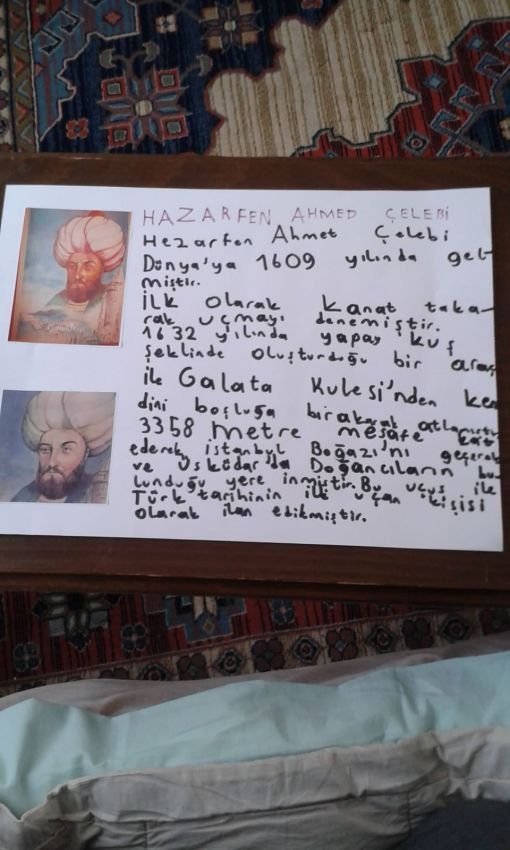 HAZARFEN AHMED ÇELEBİ
Hezarfen Ahmet Çelebi
Dünya'ya 1609 yılında gel-
miştir.
İlk olarak kanat taka-
rak uçmayı denemiştir.
1632 yılında yapay kuş
şeklinde oluşturduğu bir araç
ile Galata Kulesi'nden ken
dini boşluğa bırakarak atlamıştır
3358 metre mesafe kat
ederek İstanbul Boğazı'nı geçerek
ve Üsküdar'da Doğancıların bu
lunduğu yere inmiştir. Bu uçuş ile
Türk tarihinin ilk uçan kişisi
olarak ilan edikmiştir.